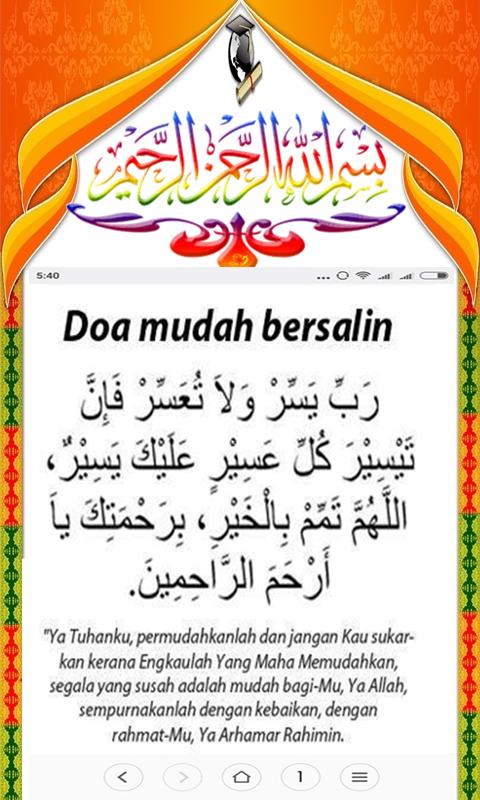 بِسْمِ اللهِ الرَّحْمٰنِ الرَّحِيْمِ
5:40
Doa mudah bersalin
رَبِّ يَسِّرْ وَلاَ تُعَسِّرْ فَإِنَّ
تَيْسِيْرَ كُلِّ عَسِيْرٍ عَلَيْكَ يَسِيْرٌ،
اللَّهُمَّ تَمِّمْ بِالْخَيْرِ، بِرَحْمَتِكَ ياَ
أَرْحَمَ الرَّاحِمِينَ.
"Ya Tuhanku, permudahkanlah dan jangan Kau sukar-
kan kerana Engkaulah Yang Maha Memudahkan,
segala yang susah adalah mudah bagi-Mu, Ya Allah,
sempurnakanlah dengan kebaikan, dengan
rahmat-Mu, Ya Arhamar Rahimin.
1